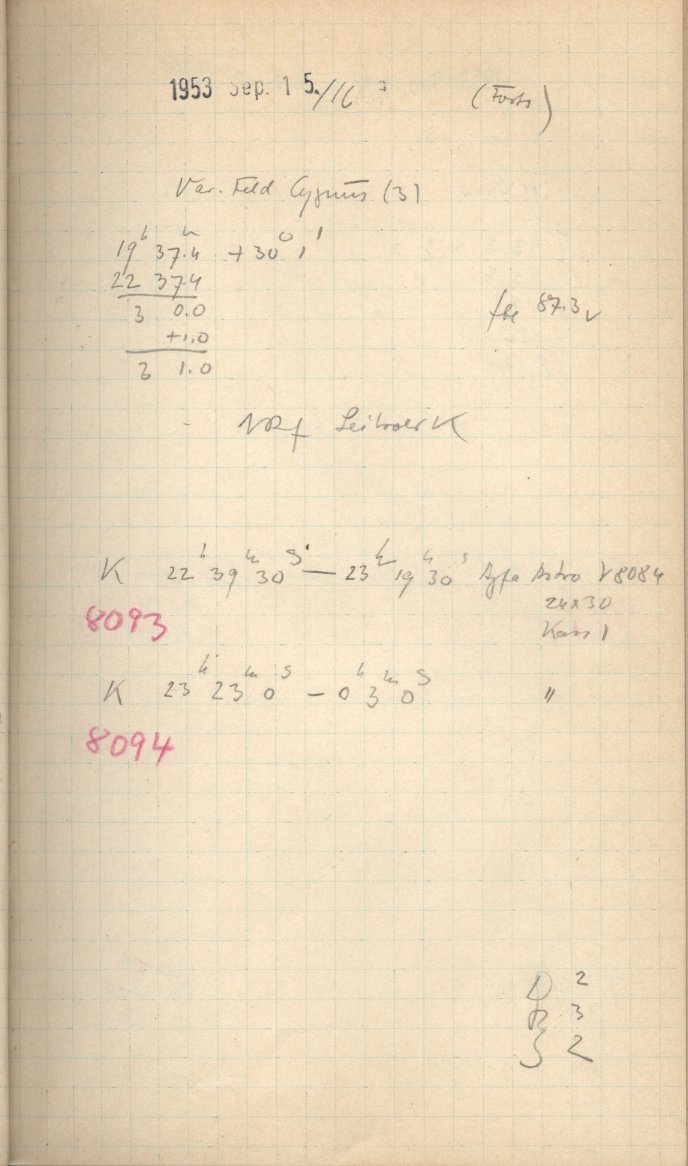 1953 Sep. 1 5./16 (Forts)
Var. Feld Cygnus (3)
19h 37.4m +30° 1'
22 37.4
3 0.0 87.3
+1.0
3 1.0
K 22h 39m 30s — 23h 19m 30s Agfa Astro V8084
8093 24x30
Kass 1
K 23h 23m 0s — 0h 3m 0s "
8094
D 2
R 3
S 2